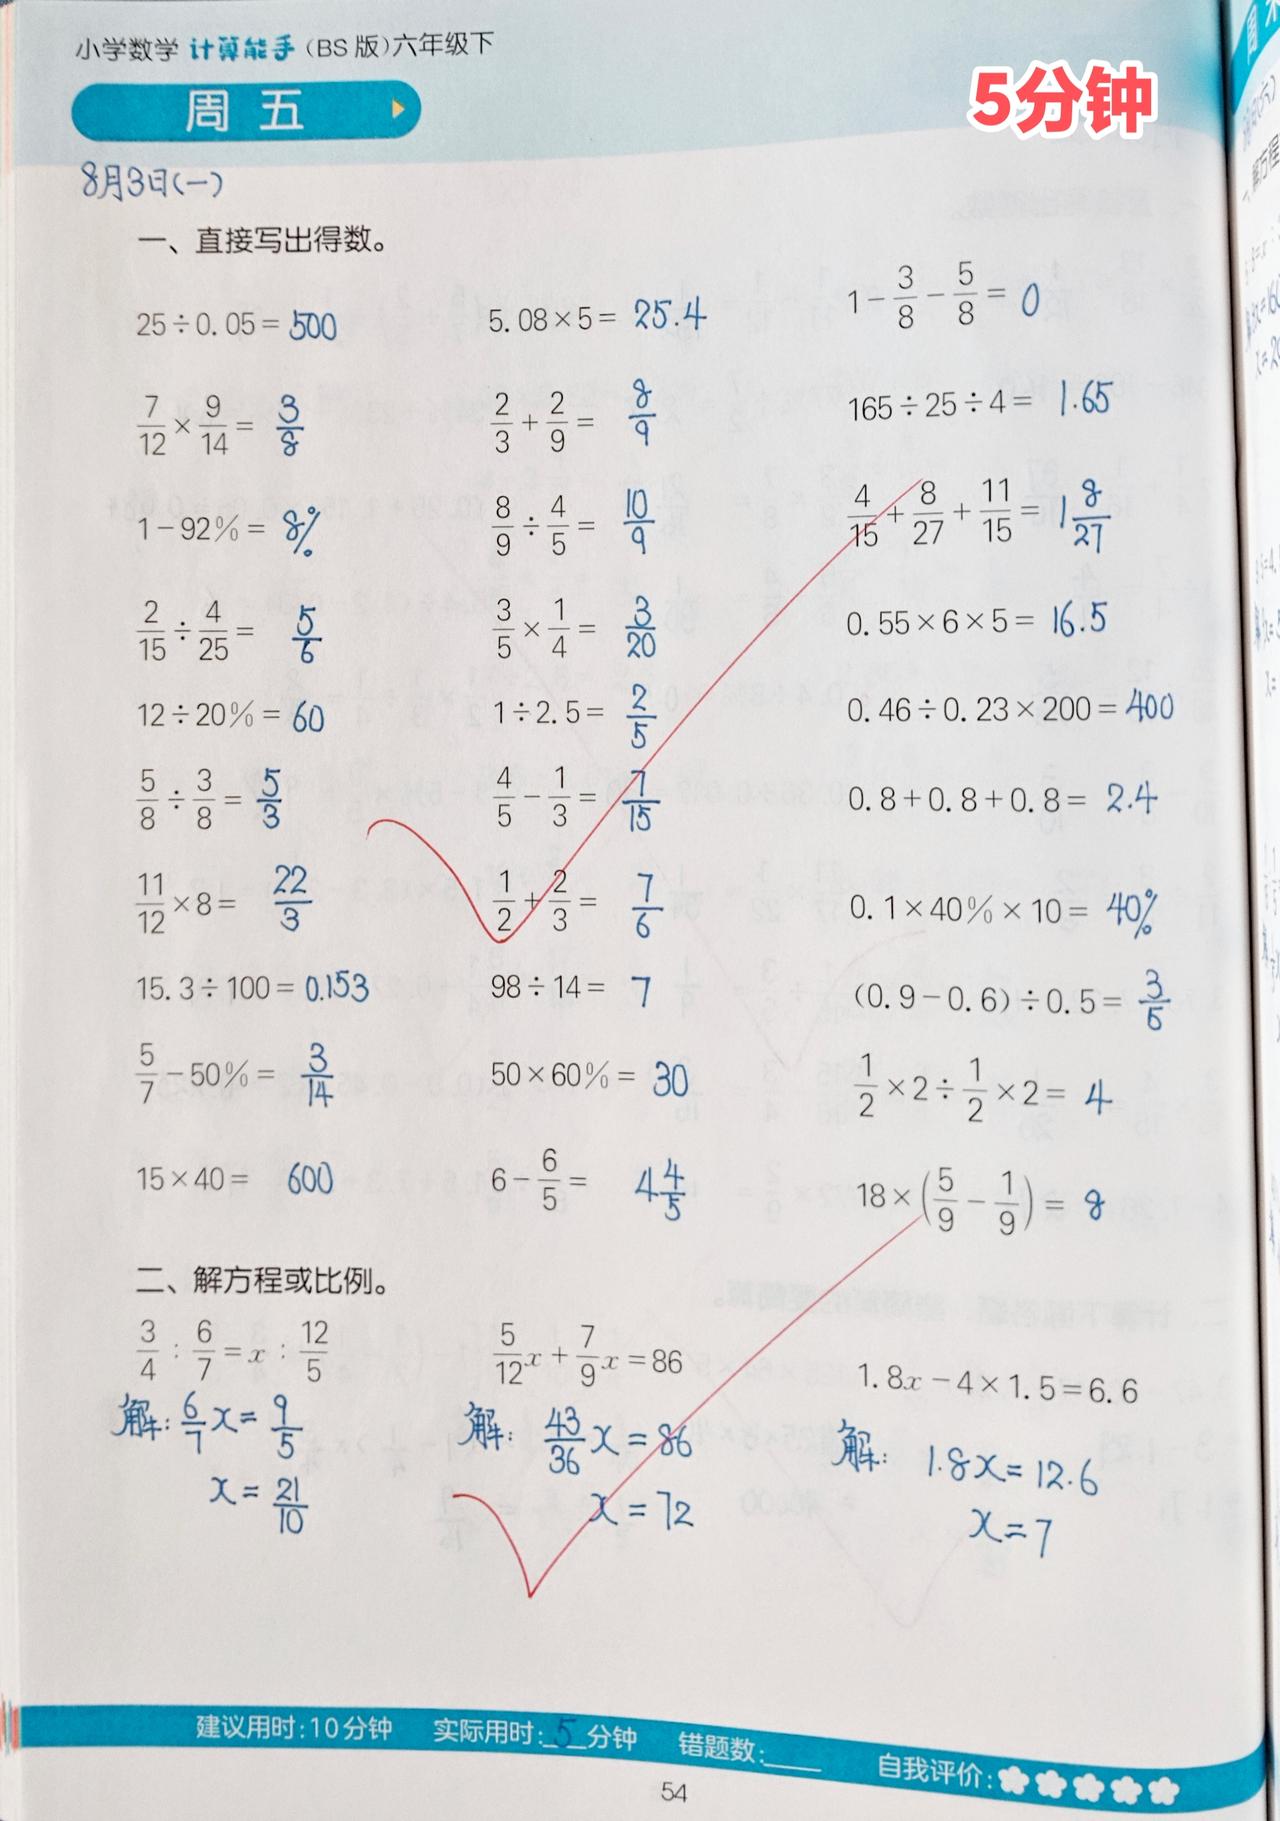 小学数学 计算能手（BS版）六年级下
周五
5分钟
8月3日(一)
一、直接写出得数。
25÷0.05=500 5.08×5=25.4 1-3/8-5/8=0
7/12×9/14=3/8 2/3+2/9=8/9 165÷25÷4=1.65
1-92%=8% 8/9÷4/5=10/9 4/15+8/27+11/15=1 8/27
2/15÷4/25=5/6 3/5×1/4=3/20 0.55×6×5=16.5
12÷20%=60 1÷2.5=2/5 0.46÷0.23×200=400
5/8÷3/8=5/3 4/5-1/3=7/15 0.8+0.8+0.8=2.4
11/12×8=22/3 1/2+2/3=7/6 0.1×40%×10=40%
15.3÷100=0.153 98÷14=7 (0.9-0.6)÷0.5=3/5
5/7-50%=3/14 50×60%=30 1/2×2÷1/2×2=4
15×40=600 6-6/5=4 4/5 18×(5/9-1/9)=8
二、解方程或比例。
3/4:6/7=x:12/5 5/12x+7/9x=86 1.8x-4×1.5=6.6
解:6/7x=9/5 解:43/36x=86 解:1.8x=12.6
x=21/10 x=72 x=7
建议用时:10分钟 实际用时:5分钟 错题数:____ 自我评价:
54